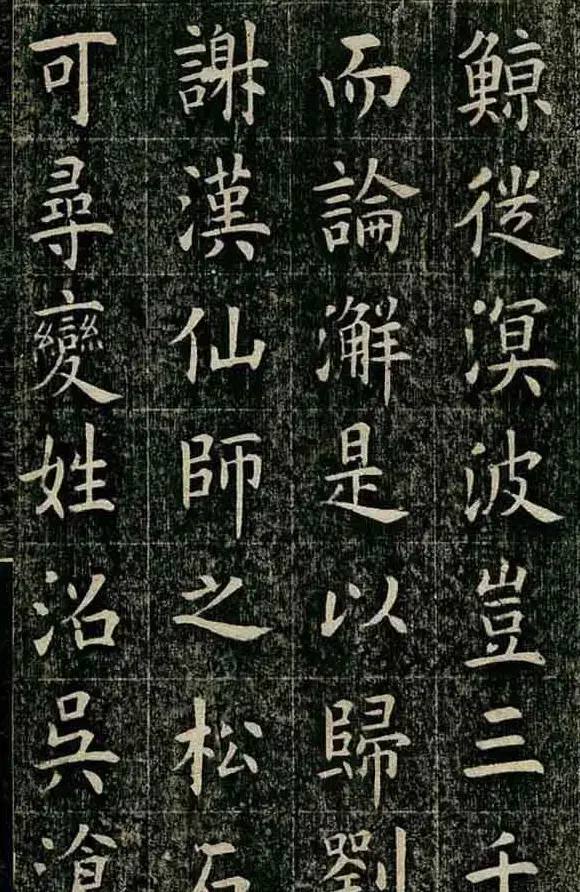 鯨徙溟波豈三千
而論澥是以歸劉
謝漢仙師之松石
可尋變姓沿吳滄